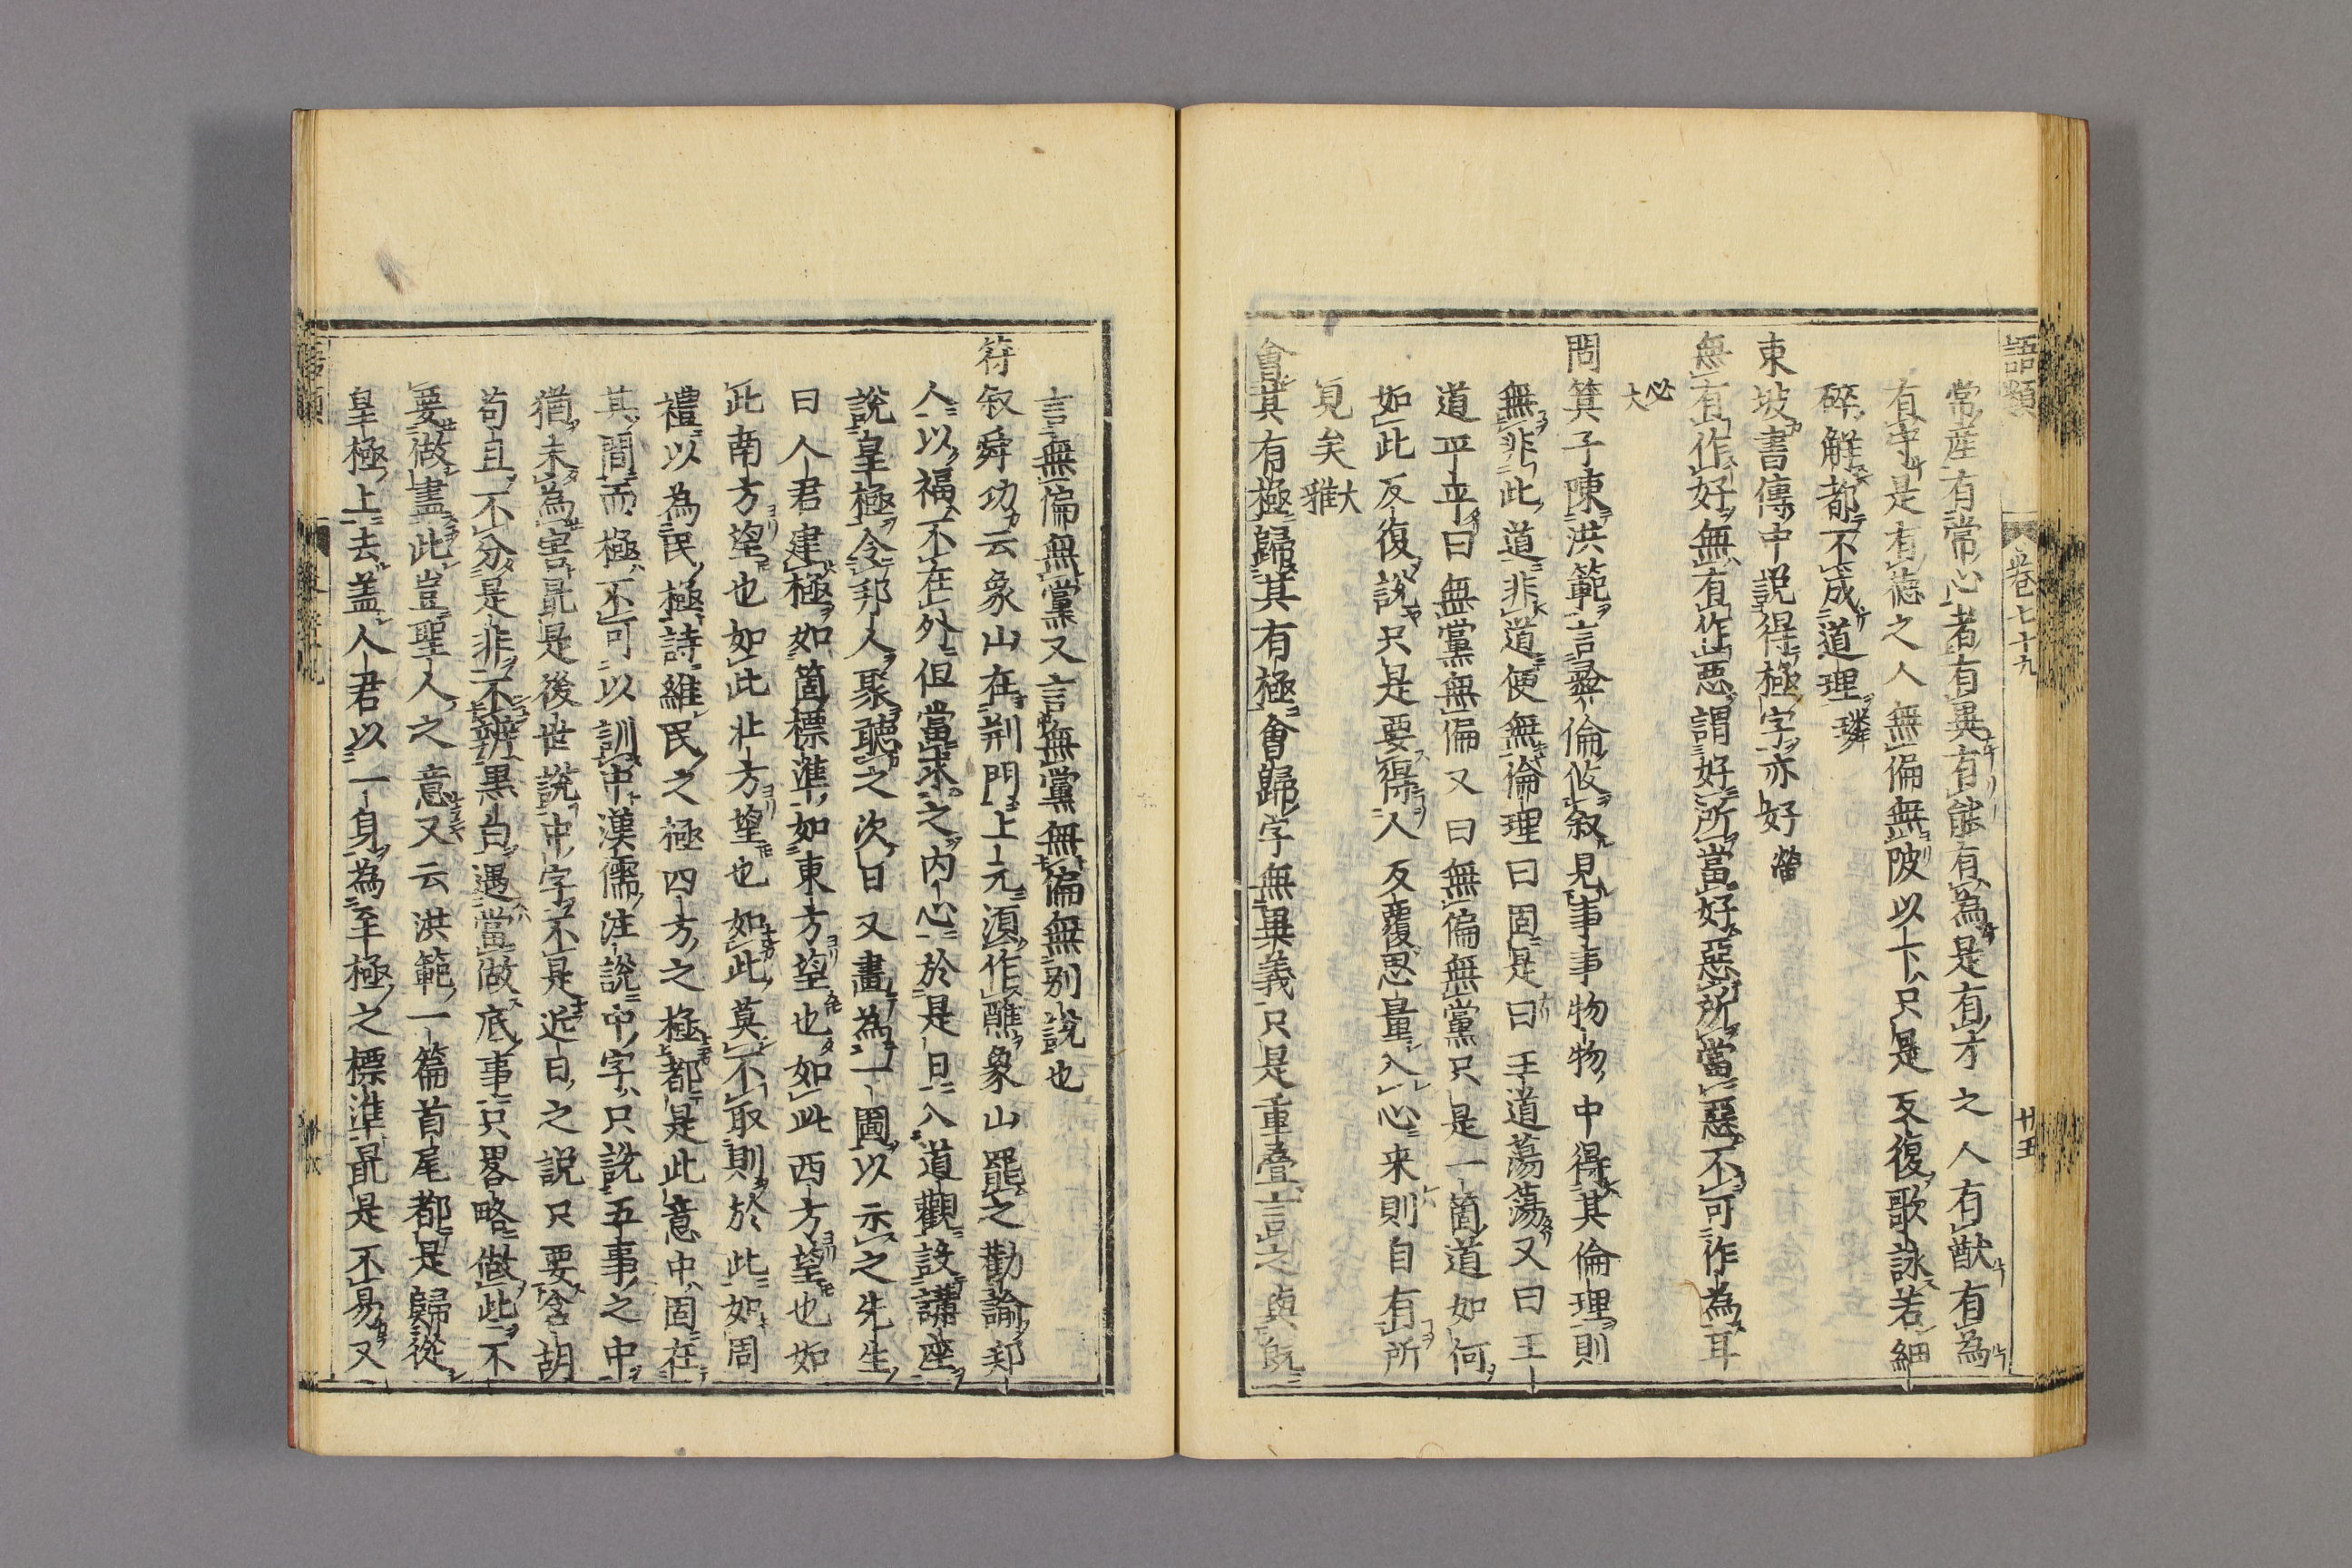 語類 卷七十九 廿五
常産有常心者有異有能有為是有才之人有猷有為
有守是有德之人無偏無陂以下只是反復歌詠若細
碎解都不成道理璘
東坡書傳中説得極字亦好㽦
無有作好無有作惡謂好所當好惡所當惡不可作為耳
必大
問箕子陳洪範言彝倫攸叙見事事物物中得其倫理則
無非此道非道便無倫理曰固是曰王道蕩蕩又曰王
道平平曰無黨無偏又曰無偏無黨只是一箇道如何
如此反復説只是要得人反覆思量入心来則自有所
見矣大雅
會其有極歸其有極會歸字無異義只是重疊言之與既
言無偏無黨又言無黨無偏無别説也
符叙舜功云象山在荆門上元須作醮象山罷之勸諭邦
人以福不在外但當求之内心於是日入道觀設講座
說皇極令邦人聚聽之次日又畫為一圖以示之先生
曰人君建極如箇標準如東方望也如此西方望也如
此南方望也如此北方望也如此莫不取則於此如周
禮以為民極詩維民之極四方之極都是此意中固在
其間而極不可以訓中漢儒注說中字只說五事之中
猶未為害最是後世説中字不是近日之説只要含胡
苟且不分是非不辨黒白遇當做底事只畧略做此不
要做盡此豈聖人之意又云洪範一篇首尾都是歸從
皇極上去盖人君以一身為至極之標準最是不易又